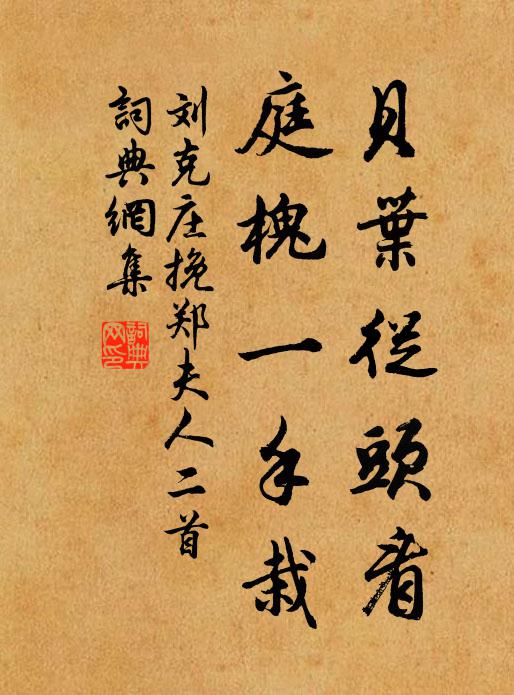 貝葉從頭看
庭槐一手栽
刘克庄挽郑夫人二首
詞典網集
詞典网印